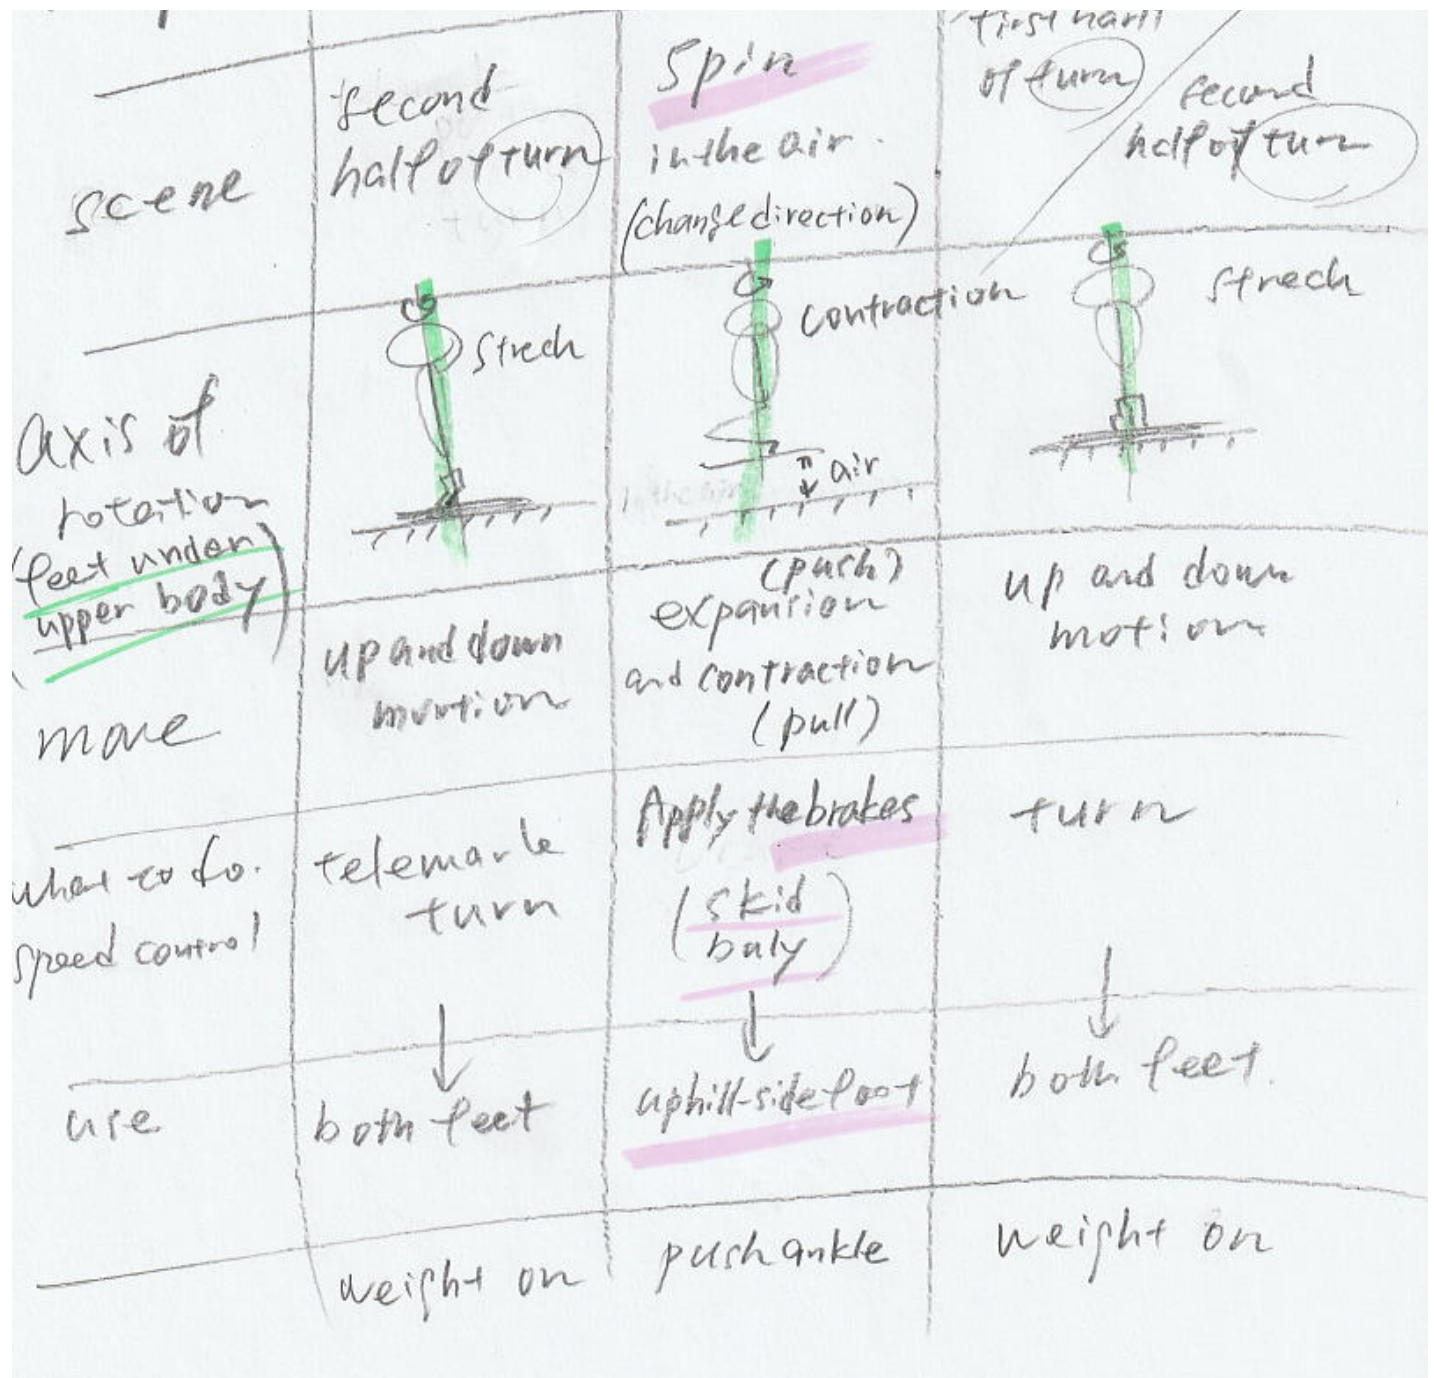 scene
second
half of turn
Spin
in the air.
(change direction)
first half
of turn
second
half of turn
axis of
rotation
(feet under
upper body)
strech
contraction
air
strech
move
up and down
motion
(push)
expansion
and contraction
(pull)
up and down
motion
what to do.
speed control
telemark
turn
Apply the brakes
(skid
baly)
turn
use
both feet
uphill-side foot
both feet.
weight on
push ankle
weight on